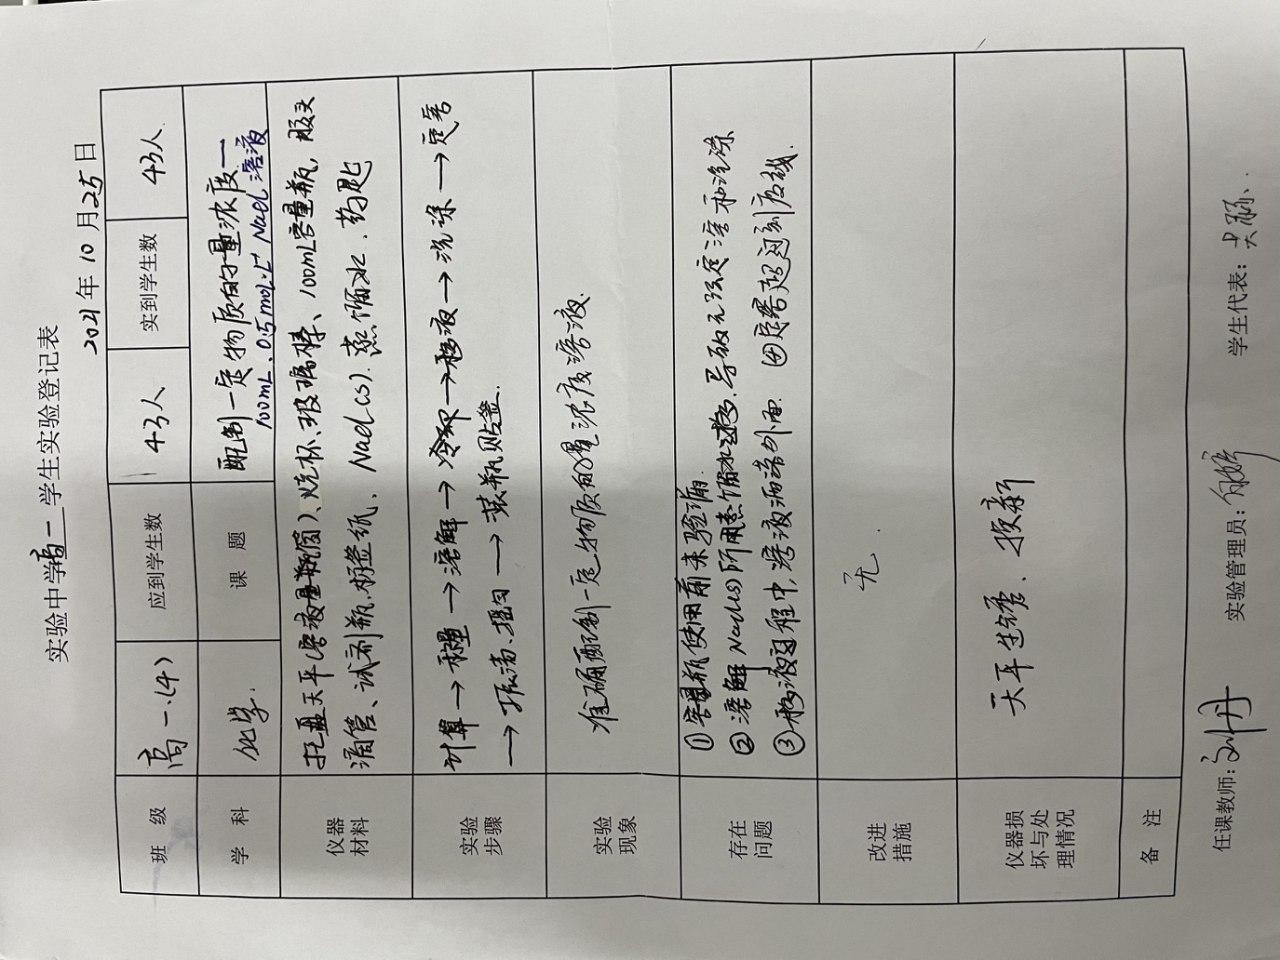 实验中学高一学生实验登记表
2021年10月25日
班级 高一.(4) 应到学生数 43人 实到学生数 43人.
学科 化学. 课题 配制一定物质的量浓度一
100mL、0.5mol·L⁻ NaCl溶液
仪器材料 托盘天平、烧杯、玻璃棒、100mL容量瓶, 胶头
滴管、试剂瓶、标签纸、NaCl(s). 蒸馏水、药匙
实验步骤 计算→称量→溶解→冷却→移液→洗涤→定容
→振荡、摇匀→装瓶贴签.
实验现象 准确配制一定物质的量浓度溶液.
存在问题 ①容量瓶使用前未验漏.
②溶解NaCl(s)所用蒸馏水过多,导致无法定溶和洗涤
③移液过程中,溶液洒落外面. ④定容超过刻度线.
改进措施 无.
仪器损坏与处理情况 天平生锈、报新
备注
任课教师:刘丹 实验管理员: 学生代表: